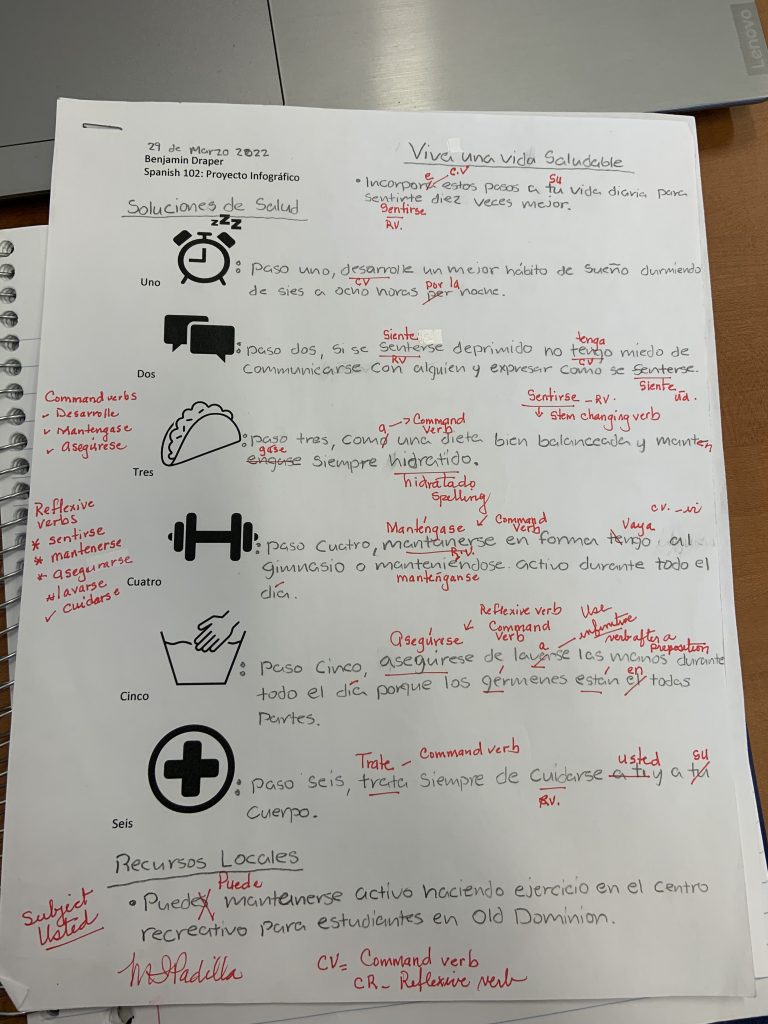 Lenovo
29 de Marzo 2022
Benjamin Draper
Spanish 102: Proyecto Infográfico
Viva una vida Saludable
e C.V su
• Incorpora estos pasos a tu vida diaria para
Sentirse
sentirte diez veces mejor.
RV.
Soluciones de Salud
zZZ
Uno
: Paso uno, desarrolle un mejor hábito de sueño durmiendo
CV por la
de sies a ocho horas per noche.
Siente tenga
Dos
: paso dos, si se senterse deprimido no tengo miedo de
RV CV
communicarse con alguien y expresar como se senterse.
Siente ud.
Sentirse - RV.
↓ Stem changing verb
Command verbs
✓ Desarrolle
✓ Manténgase
✓ asegúrese
a → Command verb
Tres
: paso tres, como una dieta bien balanceada y manten
gase
engase siempre hidratido.
hidratado
Spelling
Reflexive verbs
* sentirse
* mantenerse
* asegurarse
* lavarse
✓ cuidarse
Manténgase Command verb Vaya CV. - vi
Cuatro
: paso cuatro, mantanerse en forma tengo al
R.V.
gimnasio o manteniéndose activo durante todo el
manténganse
día.
Asegúrese Reflexive verb Command verb a Use infinitive verb after a preposition
Cinco
: paso cinco, asegúrese de laverse las manos durante
en
todo el día porque los gérmenes están el todas
partes.
Trate - Command verb usted su
Seis
: paso seis, trata siempre de cuidarse a ti y a tu
RV.
cuerpo.
Recursos Locales
Puede
• Puedes mantanerse activo haciendo ejercicio en el centro
recreativo para estudiantes en Old Dominion.
Subject
Usted
Padilla
CV= Command verb
CR- Reflexive verb